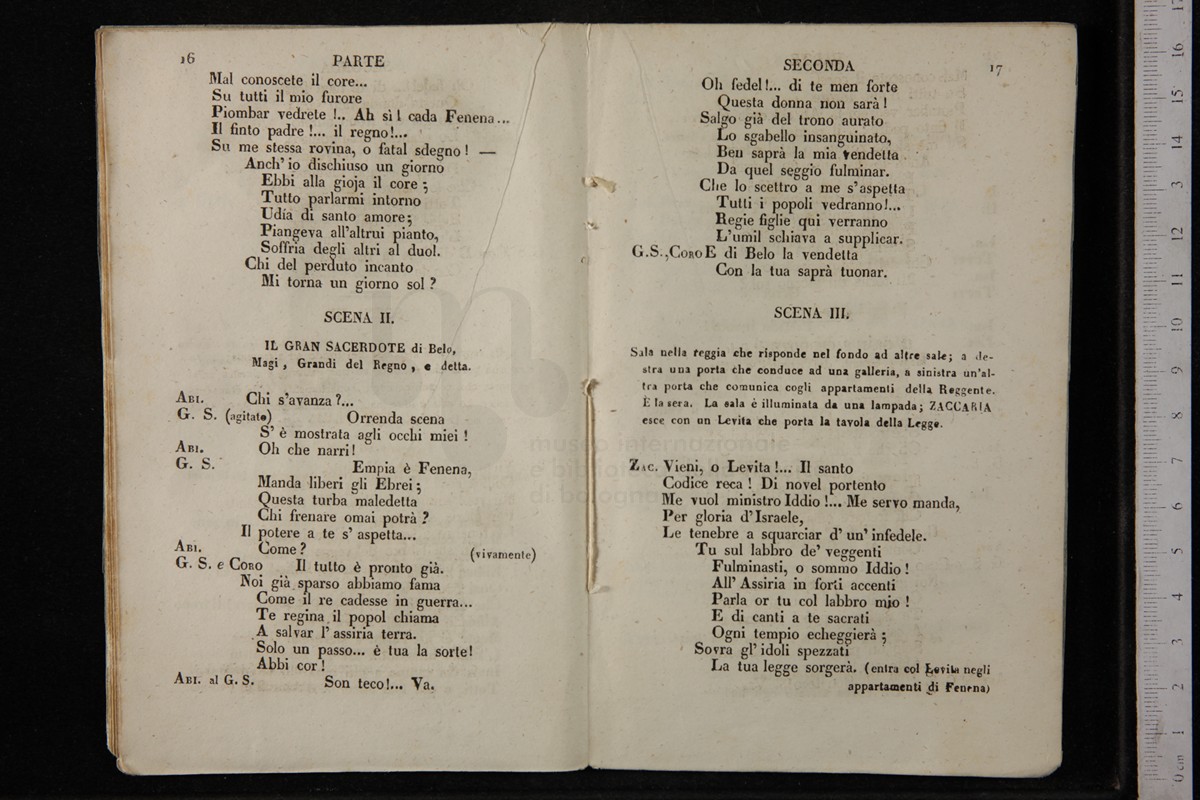 16
PARTE
Mal conoscete il core...
Su tutti il mio furore
Piombar vedrete !.. Ah sì ! cada Fenena...
Il finto padre !... il regno !...
Su me stessa rovina, o fatal sdegno ! —
Anch' io dischiuso un giorno
Ebbi alla gioja il core ;
Tutto parlarmi intorno
Udìa di santo amore;
Piangeva all'altrui pianto,
Soffrìa degli altri al duol.
Chi del perduto incanto
Mi torna un giorno sol ?
SCENA II.
IL GRAN SACERDOTE di Belo,
Magi, Grandi del Regno, e detta.
ABI. Chi s'avanza ?...
G. S. (agitato) Orrenda scena
S' è mostrata agli occhi miei !
ABI. Oh che narri !
G. S. Empia è Fenena,
Manda liberi gli Ebrei ;
Questa turba maledetta
Chi frenare omai potrà ?
Il potere a te s' aspetta...
ABI. Come ? (vivamente)
G. S. e CORO Il tutto è pronto già.
Noi già sparso abbiamo fama
Come il re cadesse in guerra...
Te regina il popol chiama
A salvar l' assiria terra.
Solo un passo... è tua la sorte!
Abbi cor !
ABI. al G. S. Son teco!... Va.
SECONDA
17
Oh fedel !... di te men forte
Questa donna non sarà !
Salgo già del trono aurato
Lo sgabello insanguinato,
Ben saprà la mia vendetta
Da quel seggio fulminar.
Che lo scettro a me s'aspetta
Tutti i popoli vedranno!...
Regie figlie qui verranno
L'umil schiava a supplicar.
G.S., CORO E di Belo la vendetta
Con la tua saprà tuonar.
SCENA III.
Sala nella reggia che risponde nel fondo ad altre sale; a de-
stra una porta che conduce ad una galleria, a sinistra un'al-
tra porta che comunica cogli appartamenti della Reggente.
È la sera. La sala è illuminata da una lampada; ZACCARIA
esce con un Levita che porta la tavola della Legge.
ZAC. Vieni, o Levita !... Il santo
Codice reca ! Di novel portento
Me vuol ministro Iddio !... Me servo manda,
Per gloria d'Israele,
Le tenebre a squarciar d' un' infedele.
Tu sul labbro de' veggenti
Fulminasti, o sommo Iddio !
All' Assiria in forti accenti
Parla or tu col labbro mio !
E di canti a te sacrati
Ogni tempio echeggierà ;
Sovra gl' idoli spezzati
La tua legge sorgerà. (entra col Levita negli
appartamenti di Fenena)
museo internazionale
e biblioteca
di bologna
0 cm 1 2 3 4 5 6 7 8 9 10 11 12 13 14 15 16 17